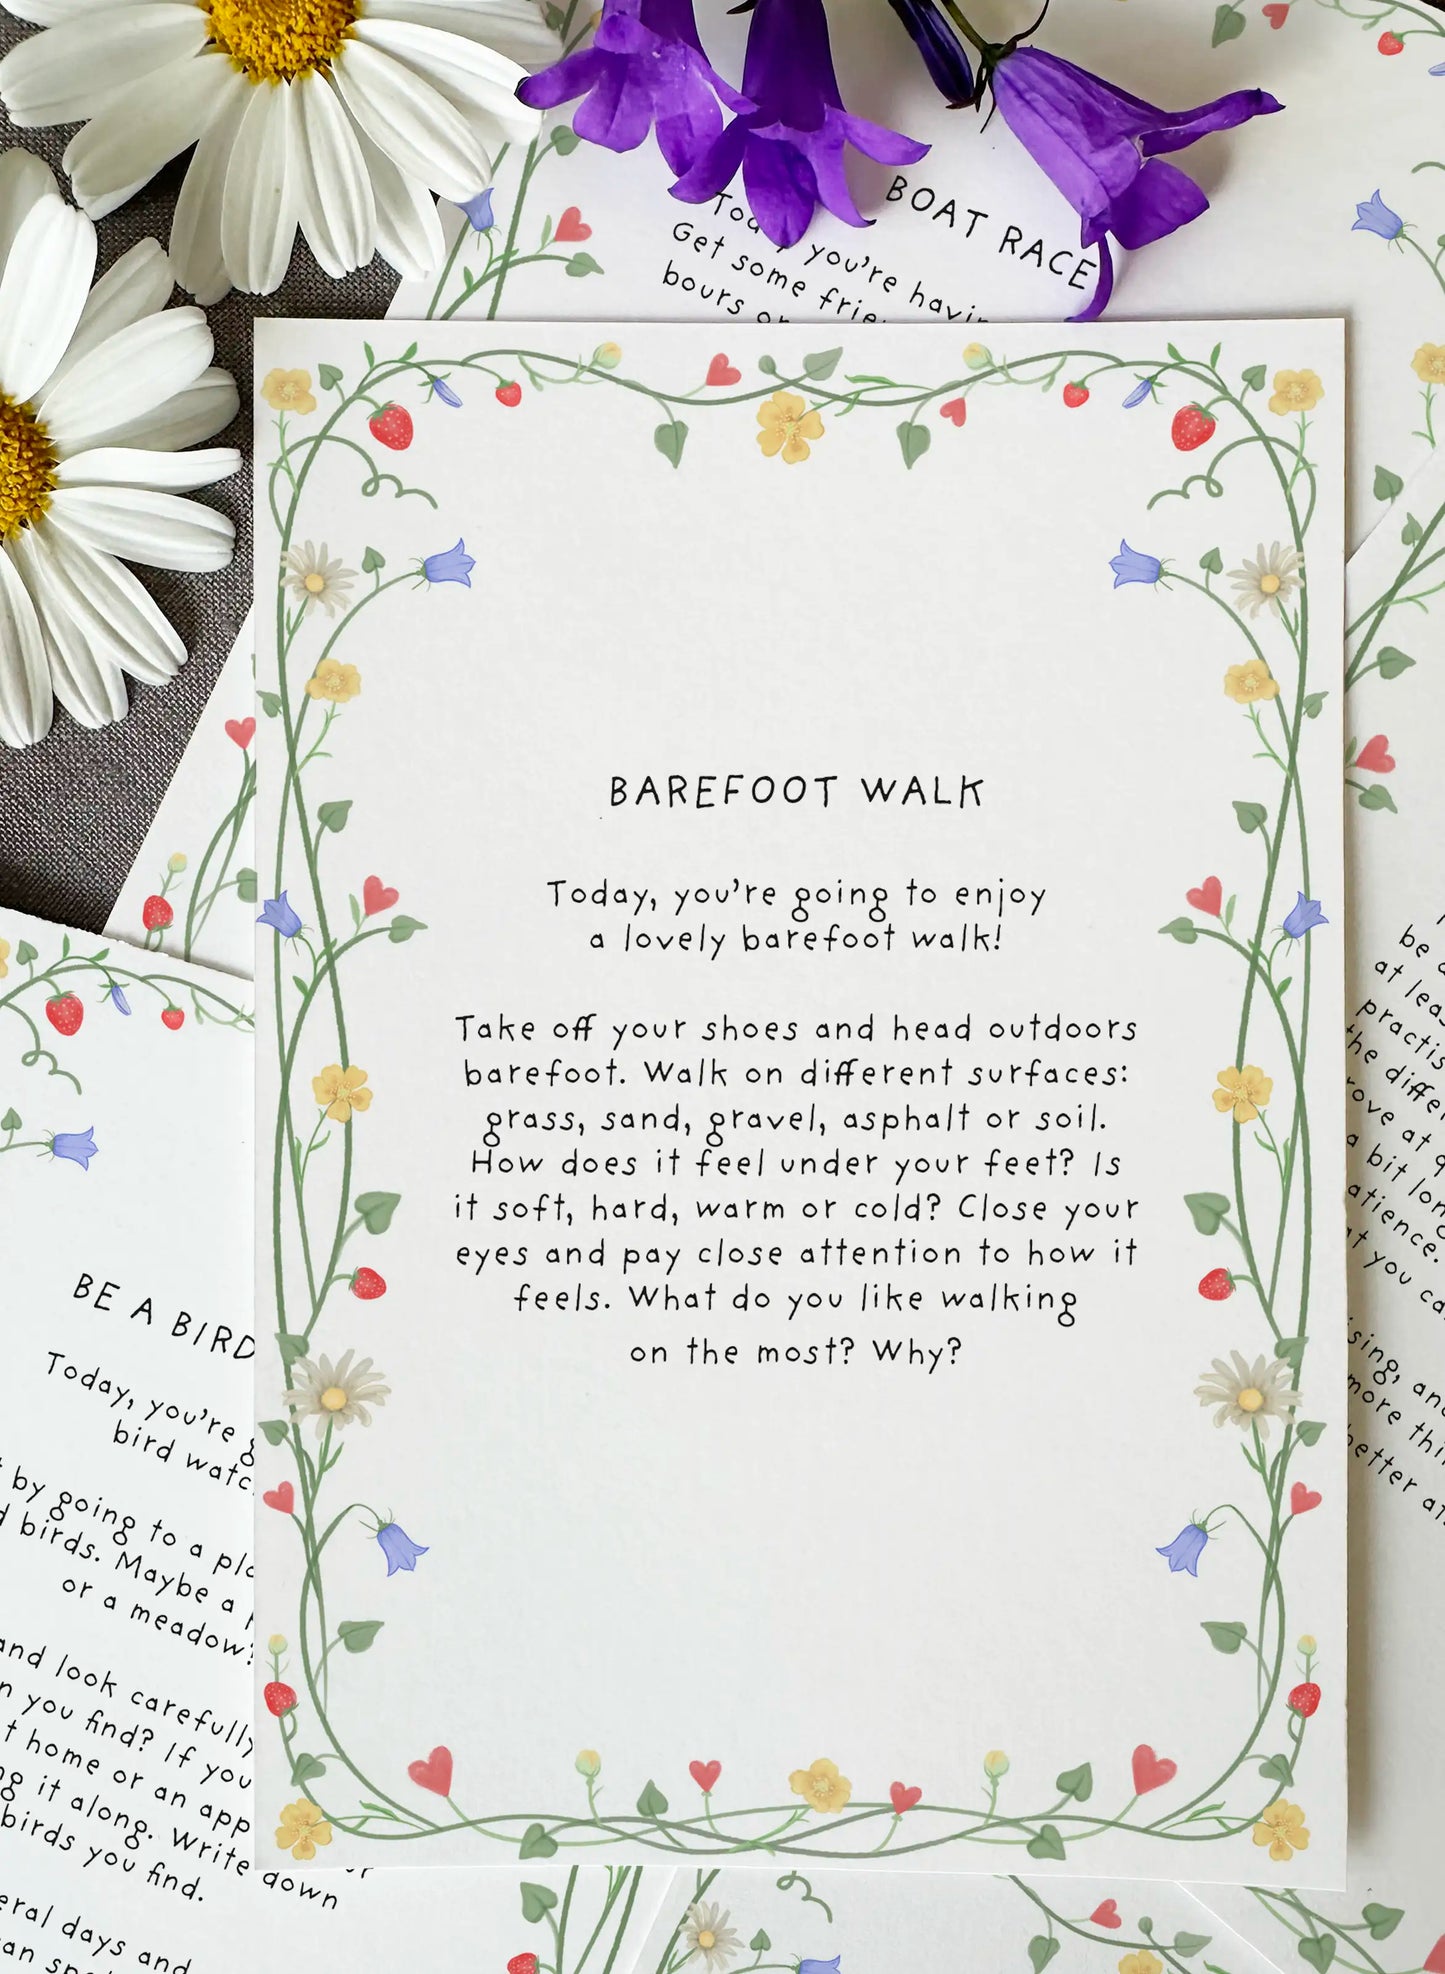 BOAT RACE
you're
Get some
bours
BAREFOOT WALK
Today, you're going to enjoy
a lovely barefoot walk!
Take off your shoes and head outdoors
barefoot. Walk on different surfaces:
grass, sand, gravel, asphalt or soil.
How does it feel under your feet? Is
it soft, hard, warm or cold? Close your
eyes and pay close attention to how it
feels. What do you like walking
on the most? Why?
BE A BIRD
Today, you're
bird
by going to a
birds. Maybe a
or a meadow?
and look carefully
you find? If you
home or an app
it along. Write down
birds you find.
days and
be
at
the
at
a bit
you
and
more
better